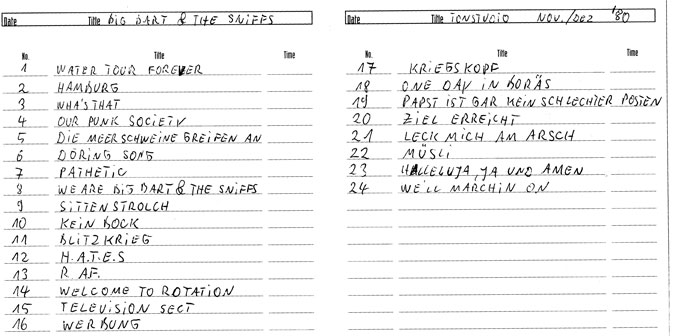 Date Title BIG BART & THE SNIFFS
No. Title Time
1 WATER TOUR FOREVER
2 HAMBURG
3 WHA'S THAT
4 OUR PUNK SOCIETY
5 DIE MEERSCHWEINE GREIFEN AN
6 DÖRING SONG
7 PATHETIC
8 WE ARE BIG BART & THE SNIFFS
9 SITTENSTROLCH
10 KEIN BOCK
11 BLITZKRIEG
12 H.A.T.E.S
13 R.AF.
14 WELCOME TO ROTATION
15 TELEVISION SECT
16 WERBUNG
Date Title TONSTUDIO NOV./DEZ '80
No. Title Time
17 KRIEGSKOPF
18 ONE DAY IN BORÄS
19 PAPST IST GAR KEIN SCHLECHTER POSTEN
20 ZIEL ERREICHT
21 LECK MICH AM ARSCH
22 MÜSLI
23 HALLELUJA, JA UND AMEN
24 WE'LL MARCHIN ON